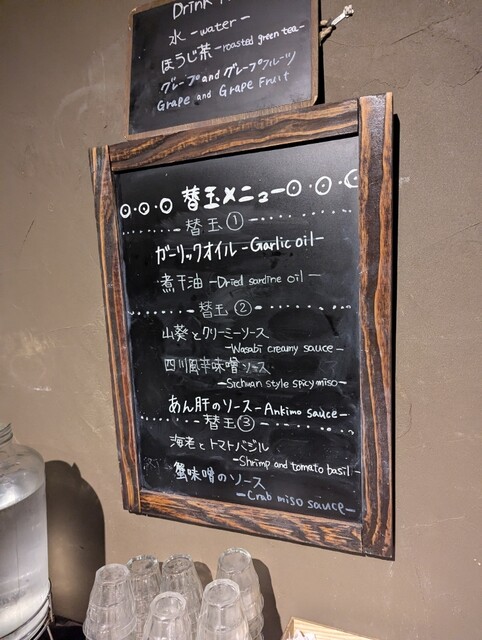 Drink
水 -water-
ほうじ茶 -roasted green tea-
グレープandグレープフルーツ
Grape and Grape Fruit
替玉メニュー
替玉①
ガーリックオイル -Garlic oil-
煮干油 -Dried sardine oil-
替玉②
山葵とクリーミーソース
-Wasabi creamy sauce-
四川風辛味噌ソース
-Sichuan style spicy miso-
あん肝のソース -Ankimo sauce-
替玉③
海老とトマトバジル
-Shrimp and tomato basil-
蟹味噌のソース
-Crab miso sauce-